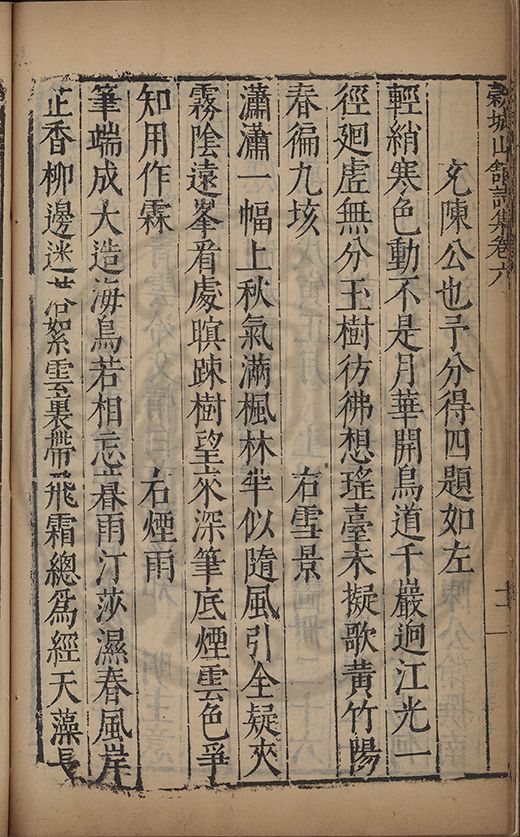 穀城山館詩集卷六
十一
兗陳公也予分得四題如左
輕綃寒色動不是月華開鳥道千巖迥江光一
徑廻虗無分玉樹彷彿想瑤臺未擬歌黃竹陽
春徧九垓 右雪景
瀟瀟一幅上秋氣滿楓林半似隨風引全疑夾
霧陰遠峯看處暝踈樹望來深筆底煙雲色爭
知用作霖 右煙雨
筆端成大造海鳥若相忘暮雨汀莎濕春風岸
芷香柳邊迷落絮雲裏帶飛霜總爲經天藻長